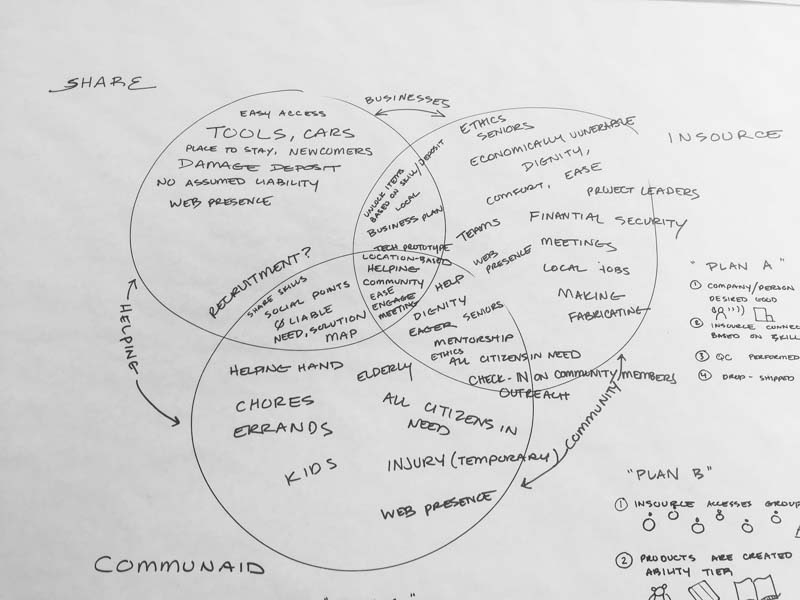 SHARE
BUSINESSES
EASY ACCESS
TOOLS, CARS
PLACE TO STAY, NEWCOMERS
DAMAGE DEPOSIT
NO ASSUMED LIABILITY
WEB PRESENCE
UNLOCK ITEMS
BASED ON SKILL/DEPOSIT
LOCAL
BUSINESS PLAN
TECH PROTOTYPE
LOCATION-BASED
HELPING
COMMUNITY
EASE
ENGAGE
MEETING
ETHICS
SENIORS
ECONOMICALLY VUNERABLE
DIGNITY,
COMFORT, EASE
PROJECT LEADERS
TEAMS
FINANTIAL SECURITY
WEB
PRESENCE
MEETINGS
LOCAL JOBS
MAKING
FABRICATING
INSOURCE
RECRUITMENT?
SHARE SKILLS
SOCIAL POINTS
Ø LIABLE
NEED, SOLUTION
MAP
HELP
DIGNITY
EAGER SENIORS
MENTORSHIP
ETHICS
ALL CITIZENS IN NEED
CHECK-IN ON COMMUNITY/MEMBERS
OUTREACH
HELPING
COMMUNITY
HELPING HAND
ELDERLY
CHORES
ERRANDS
ALL CITIZENS IN
NEED
KIDS
INJURY (TEMPORARY)
WEB PRESENCE
COMMUNAID
"PLAN A"
① COMPANY/PERSON
DESIRED GOOD
② INSOURCE CONNEC
BASED ON SKILL
③ QC PERFORMED
④ DROP-SHIPPED
"PLAN B"
① INSOURCE ACCESSES GROUP
② PRODUCTS ARE CREATED
ABILITY TIER